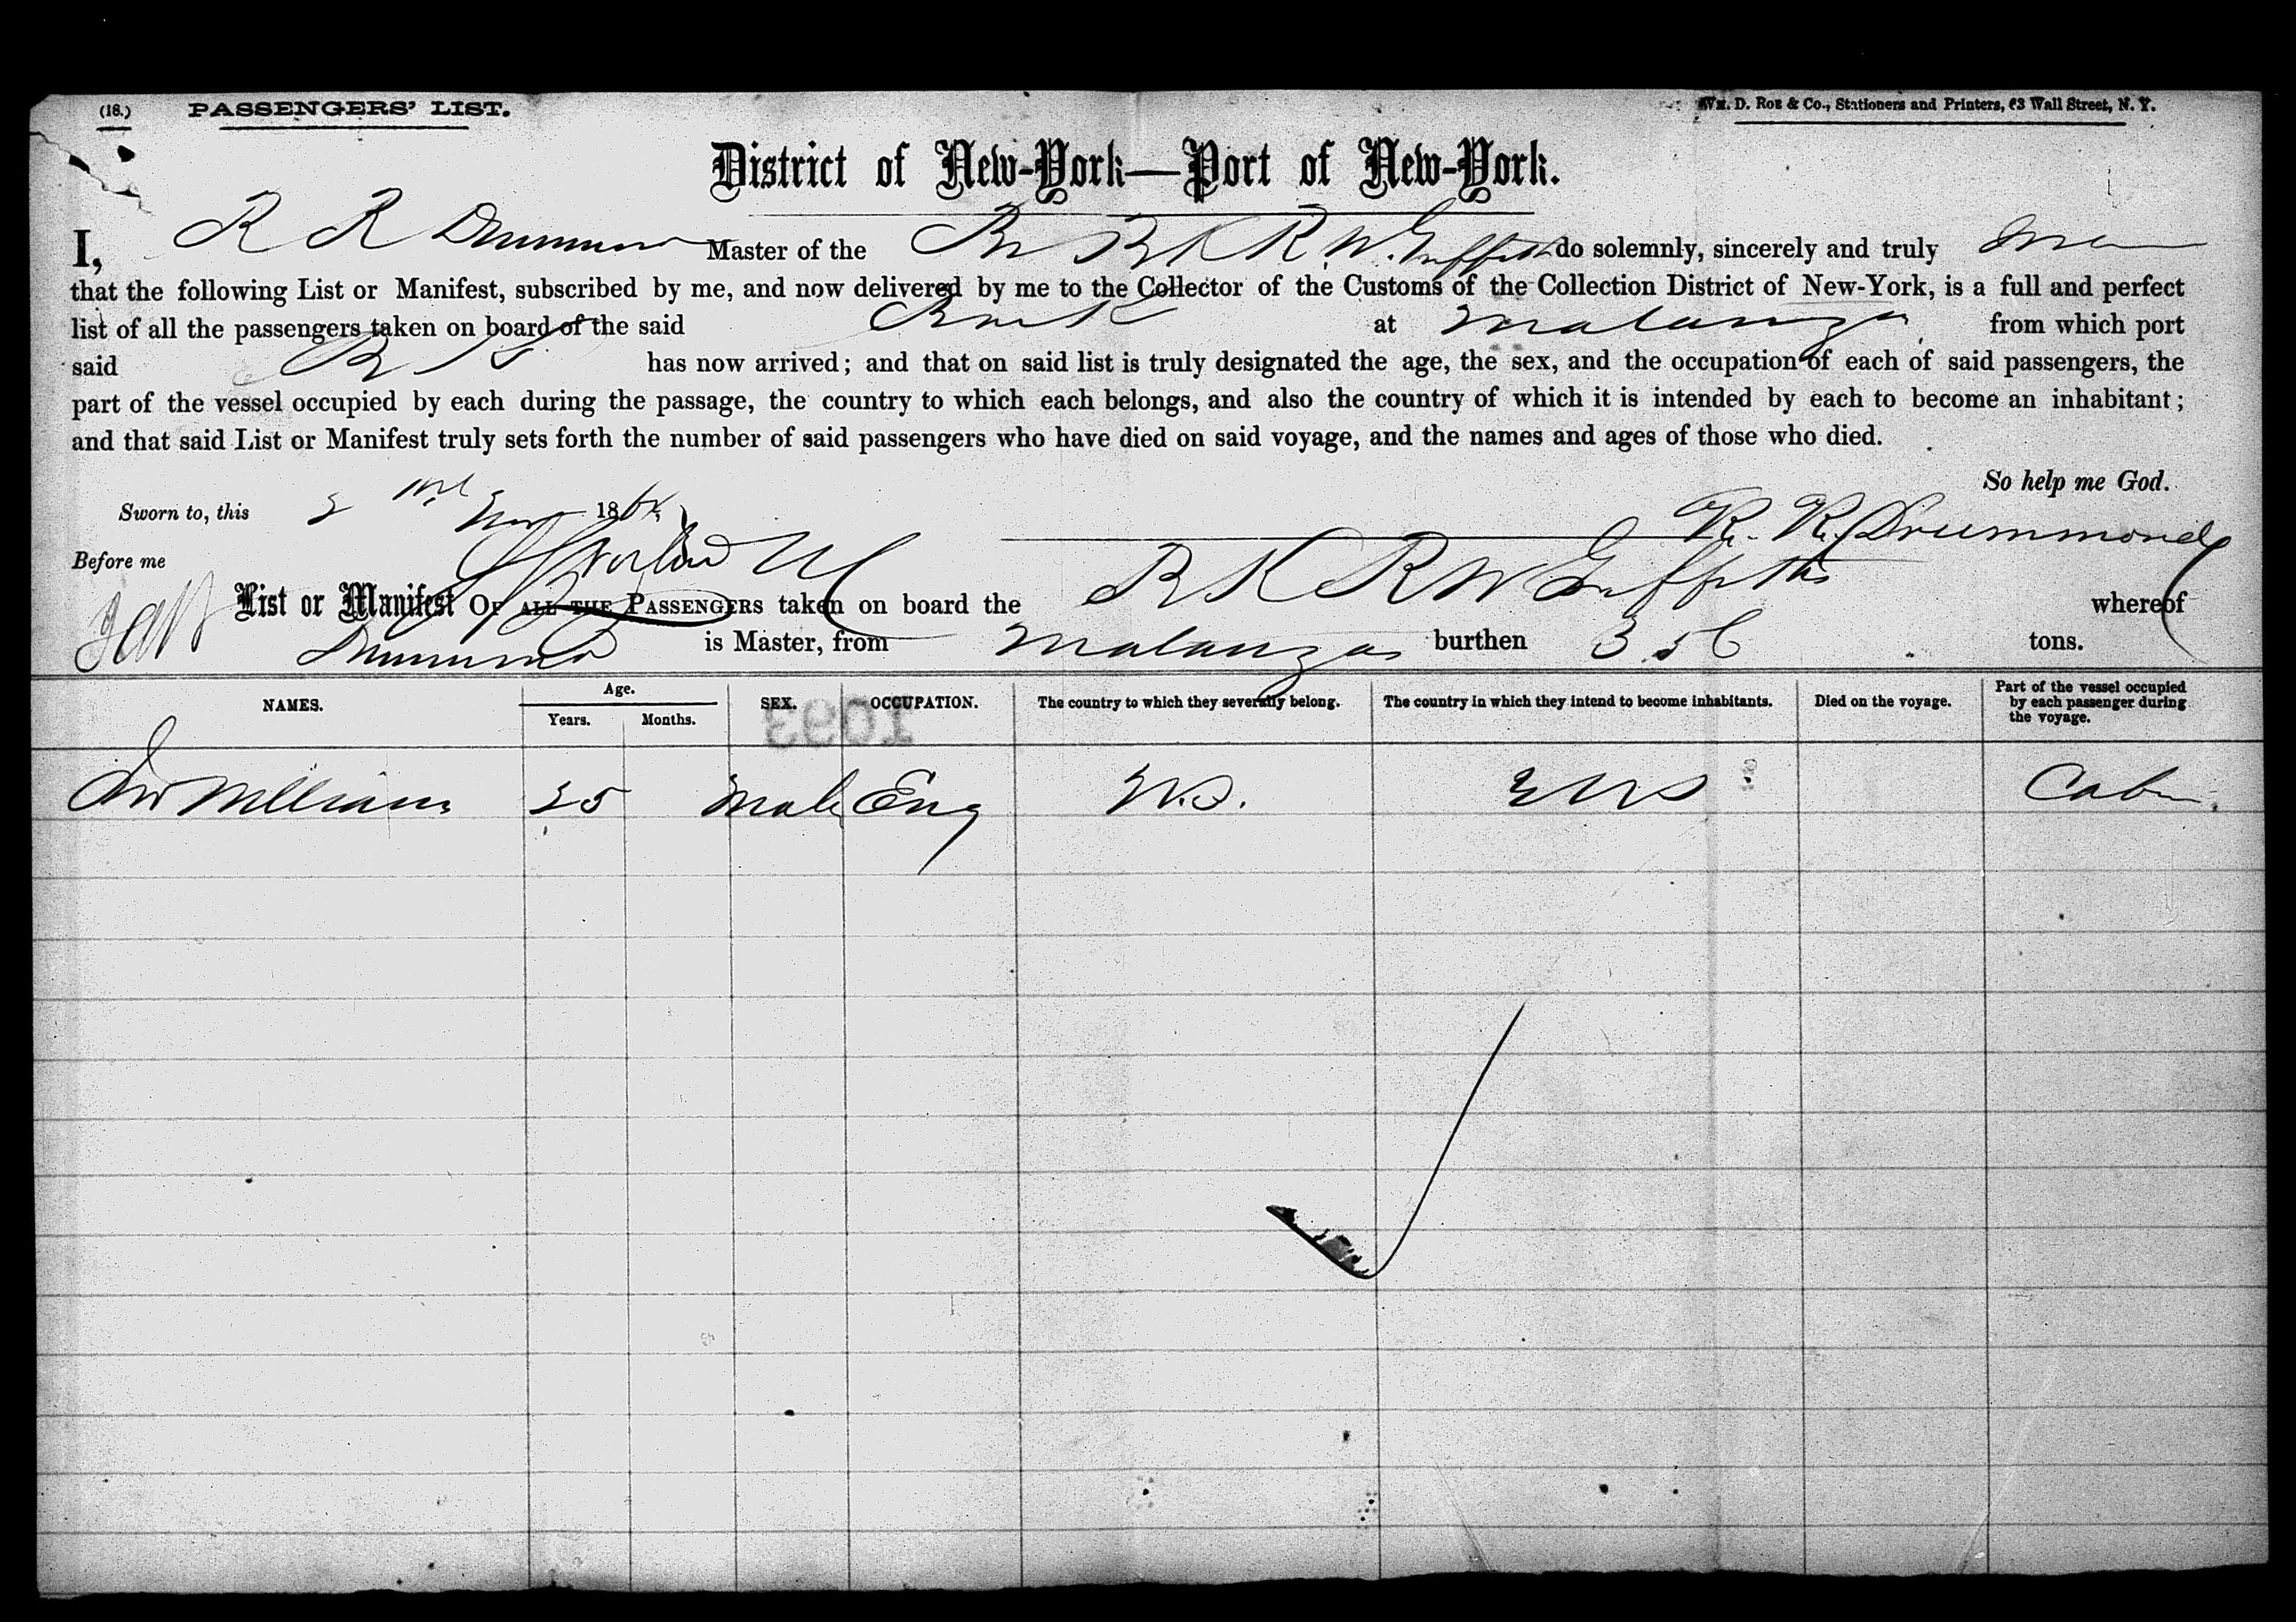 (18.) PASSENGERS' LIST. Wm. D. Roe & Co., Stationers and Printers, 63 Wall Street, N. Y.
District of New-York—Port of New-York.
I, R R Drummond Master of the Br Bk R. W. Griffiths do solemnly, sincerely and truly swear
that the following List or Manifest, subscribed by me, and now delivered by me to the Collector of the Customs of the Collection District of New-York, is a full and perfect
list of all the passengers taken on board of the said Bark at Matanzas from which port
said Bk has now arrived; and that on said list is truly designated the age, the sex, and the occupation of each of said passengers, the
part of the vessel occupied by each during the passage, the country to which each belongs, and also the country of which it is intended by each to become an inhabitant;
and that said List or Manifest truly sets forth the number of said passengers who have died on said voyage, and the names and ages of those who died.
So help me God.
Sworn to, this 2 186
R. R. Drummond
Before me
List or Manifest OF ALL THE PASSENGERS taken on board the BK R W Griffiths whereof
Drummond is Master, from Matanzas burthen 356 tons.
NAMES. Age. Years. Months. SEX. OCCUPATION. The country to which they severally belong. The country in which they intend to become inhabitants. Died on the voyage. Part of the vessel occupied by each passenger during the voyage.
1093
Williams 25 Male Eng U.S. U S Cabin